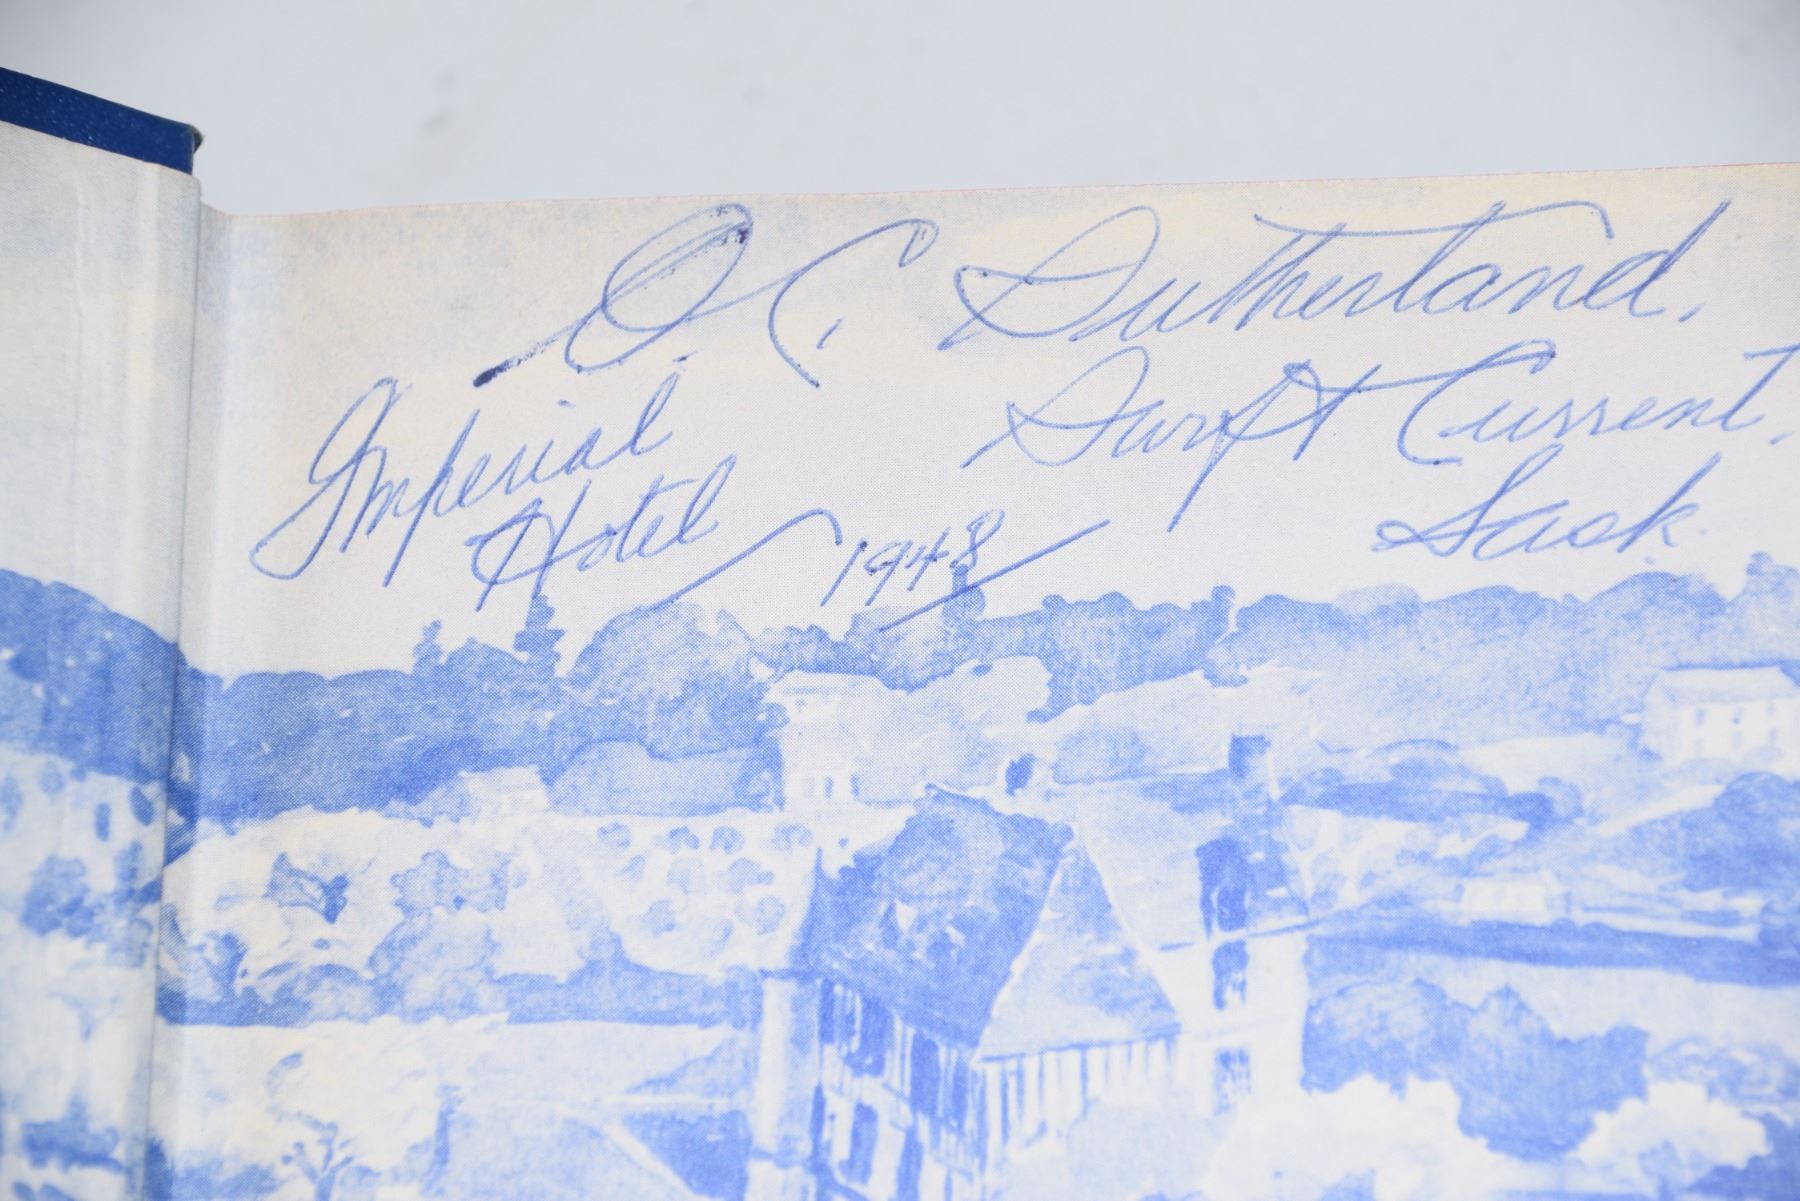 O. C. Sutherland,
Swift Current,
Sask.
Imperial
Hotel
1948